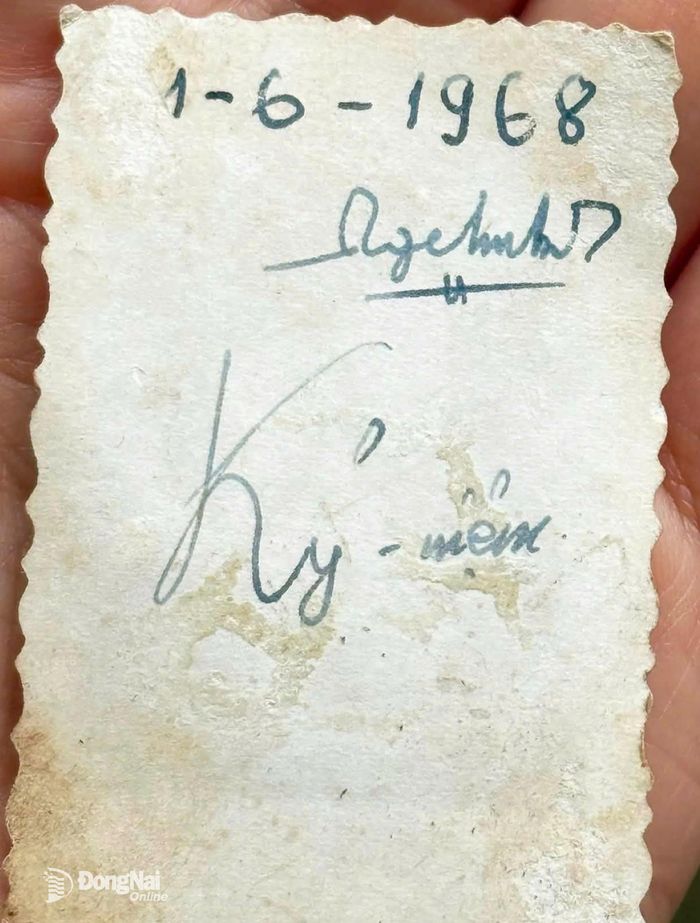 1-6-1968
Ký - niệm
ĐongNai
Online